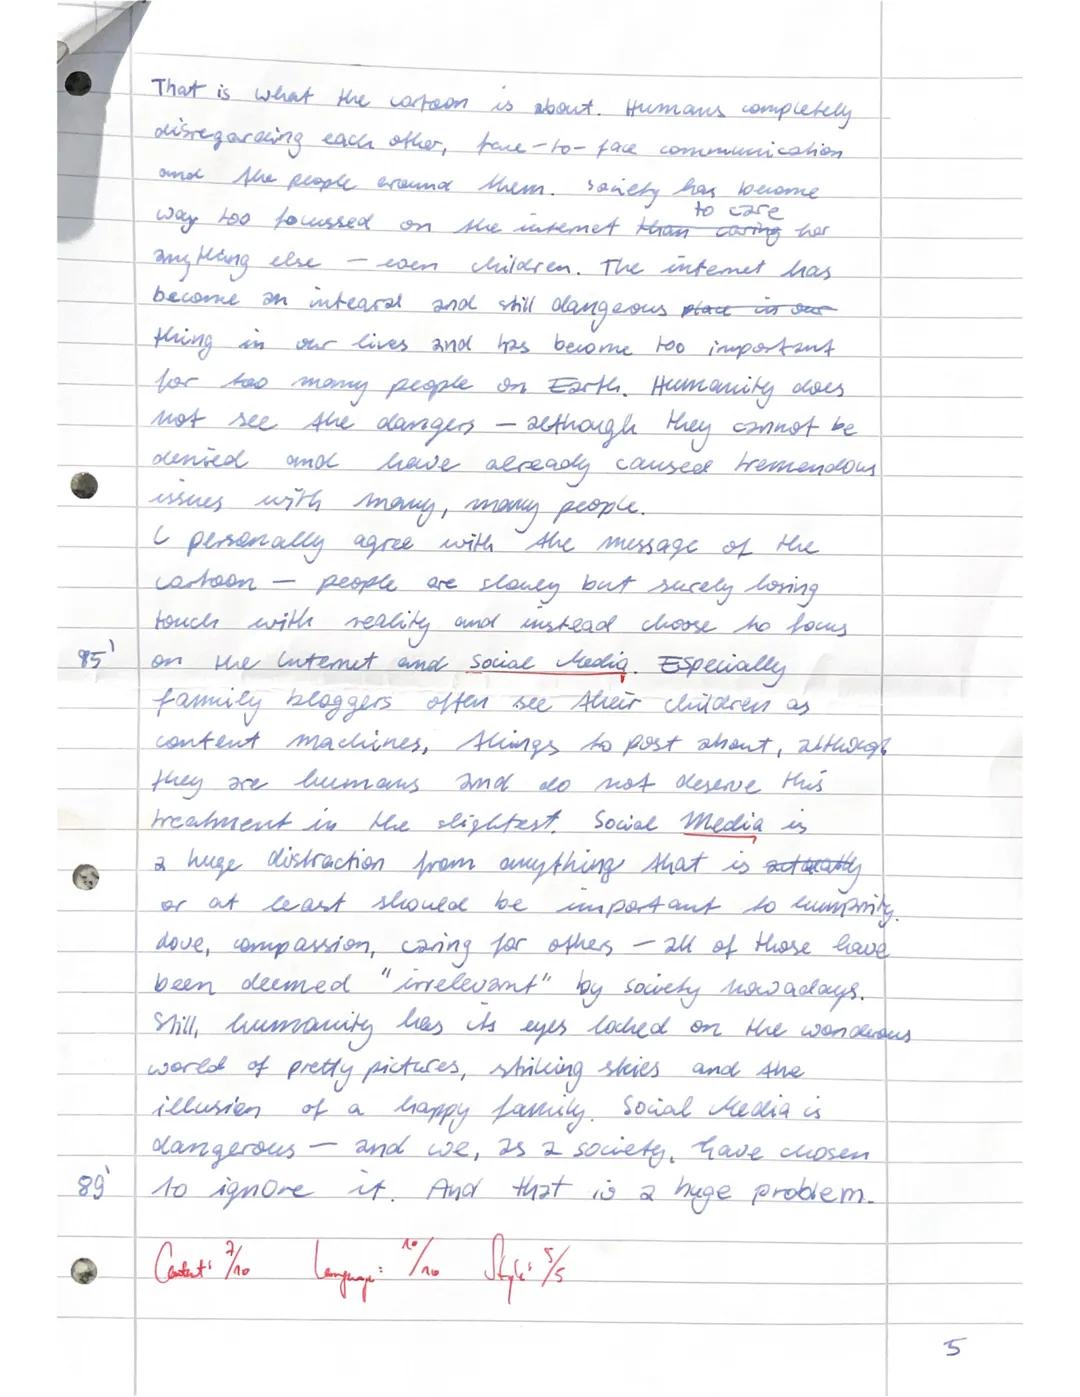 That is what the cartoon is about. Humans completely
disregarding each other, face-to-face communication
and the people around them. Society has become
to care
way too focussed on the internet than caring for
anything else – even children. The internet has
become an integral and still dangerous place in our
thing in our lives and has become too important
for too many people on Earth. Humanity does
not see the dangers – although they cannot be
denied and have already caused tremendous
issues with many, many people.
I personally agree with the message of the
cartoon – people are slowly but surely losing
touch with reality and instead choose to focus
85' on the Internet and Social Media. Especially
family bloggers often see their children as
content machines, things to post about, although
they are humans and do not deserve this
treatment in the slightest. Social Media is
a huge distraction from anything that is actually
or at least should be important to humanity.
Love, compassion, caring for others – all of those have
been deemed "irrelevant" by society nowadays.
Still, humanity has its eyes locked on the wonderous
world of pretty pictures, striking skies and the
illusion of a happy family. Social Media is
dangerous – and we, as a society, have chosen
89' to ignore it. And that is a huge problem.
Content: 7/10 Language: 10/10 Style: 5/5
5